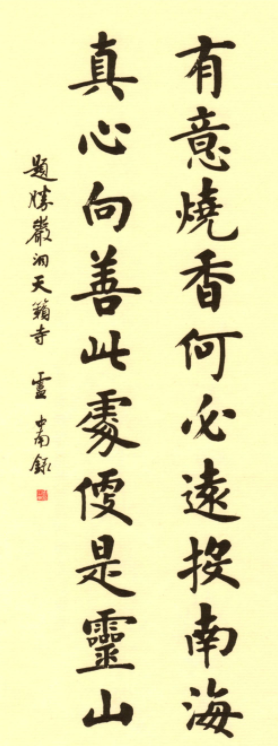 有意燒香何必遠投南海
真心向善此處便是靈山
題勝巖洞天籟寺 中南錄